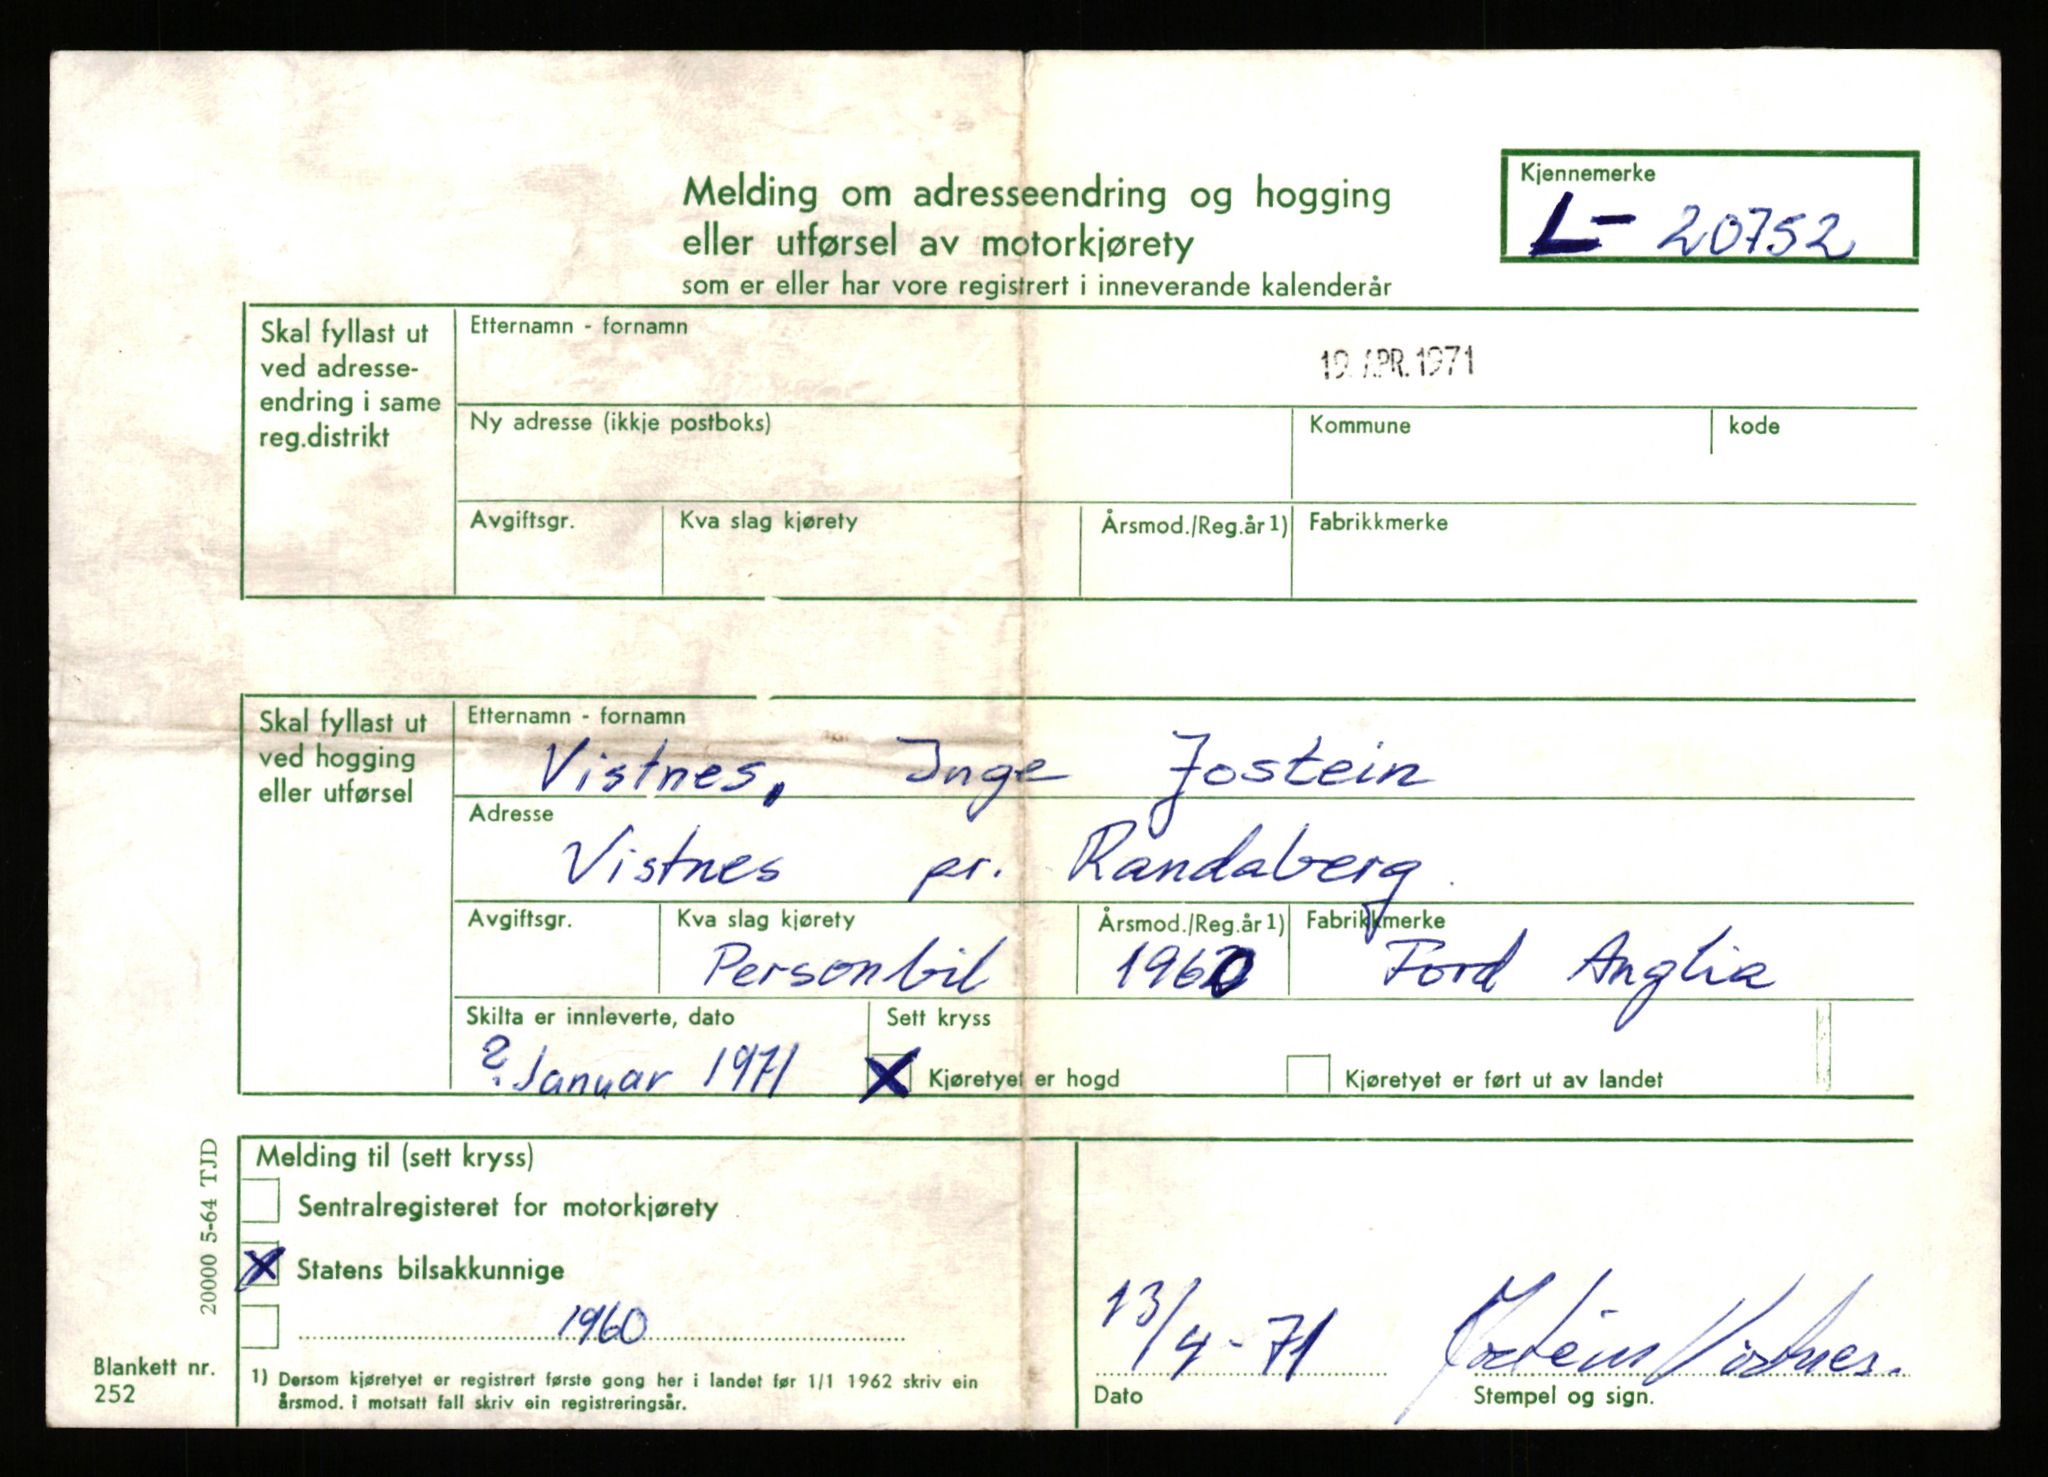 Melding om adresseendring og hogging
eller utførsel av motorkjørety
som er eller har vore registrert i inneverande kalenderår
Kjennemerke
L- 20752
Skal fyllast ut
ved adresse-
endring i same
reg.distrikt
Etternamn - fornamn
19. APR. 1971
Ny adresse (ikkje postboks)
Kommune
kode
Avgiftsgr.
Kva slag kjørety
Årsmod./Reg.år 1)
Fabrikkmerke
Skal fyllast ut
ved hogging
eller utførsel
Etternamn - fornamn
Vistnes, Inge Jostein
Adresse
Vistnes pr. Randaberg
Avgiftsgr.
Kva slag kjørety
Årsmod./Reg.år 1)
Fabrikkmerke
Personbil 1960 Ford Anglia
Skilta er innleverte, dato
Sett kryss
? Januar 1971
X Kjøretyet er hogd
Kjøretyet er ført ut av landet
Melding til (sett kryss)
Sentralregisteret for motorkjørety
X Statens bilsakkunnige
1960
1) Dersom kjøretyet er registrert første gong her i landet før 1/1 1962 skriv ein
årsmod. i motsatt fall skriv ein registreringsår.
13/4-71 Jostein Vistnes.
Dato
Stempel og sign.
20000 5-64 TJD
Blankett nr.
252